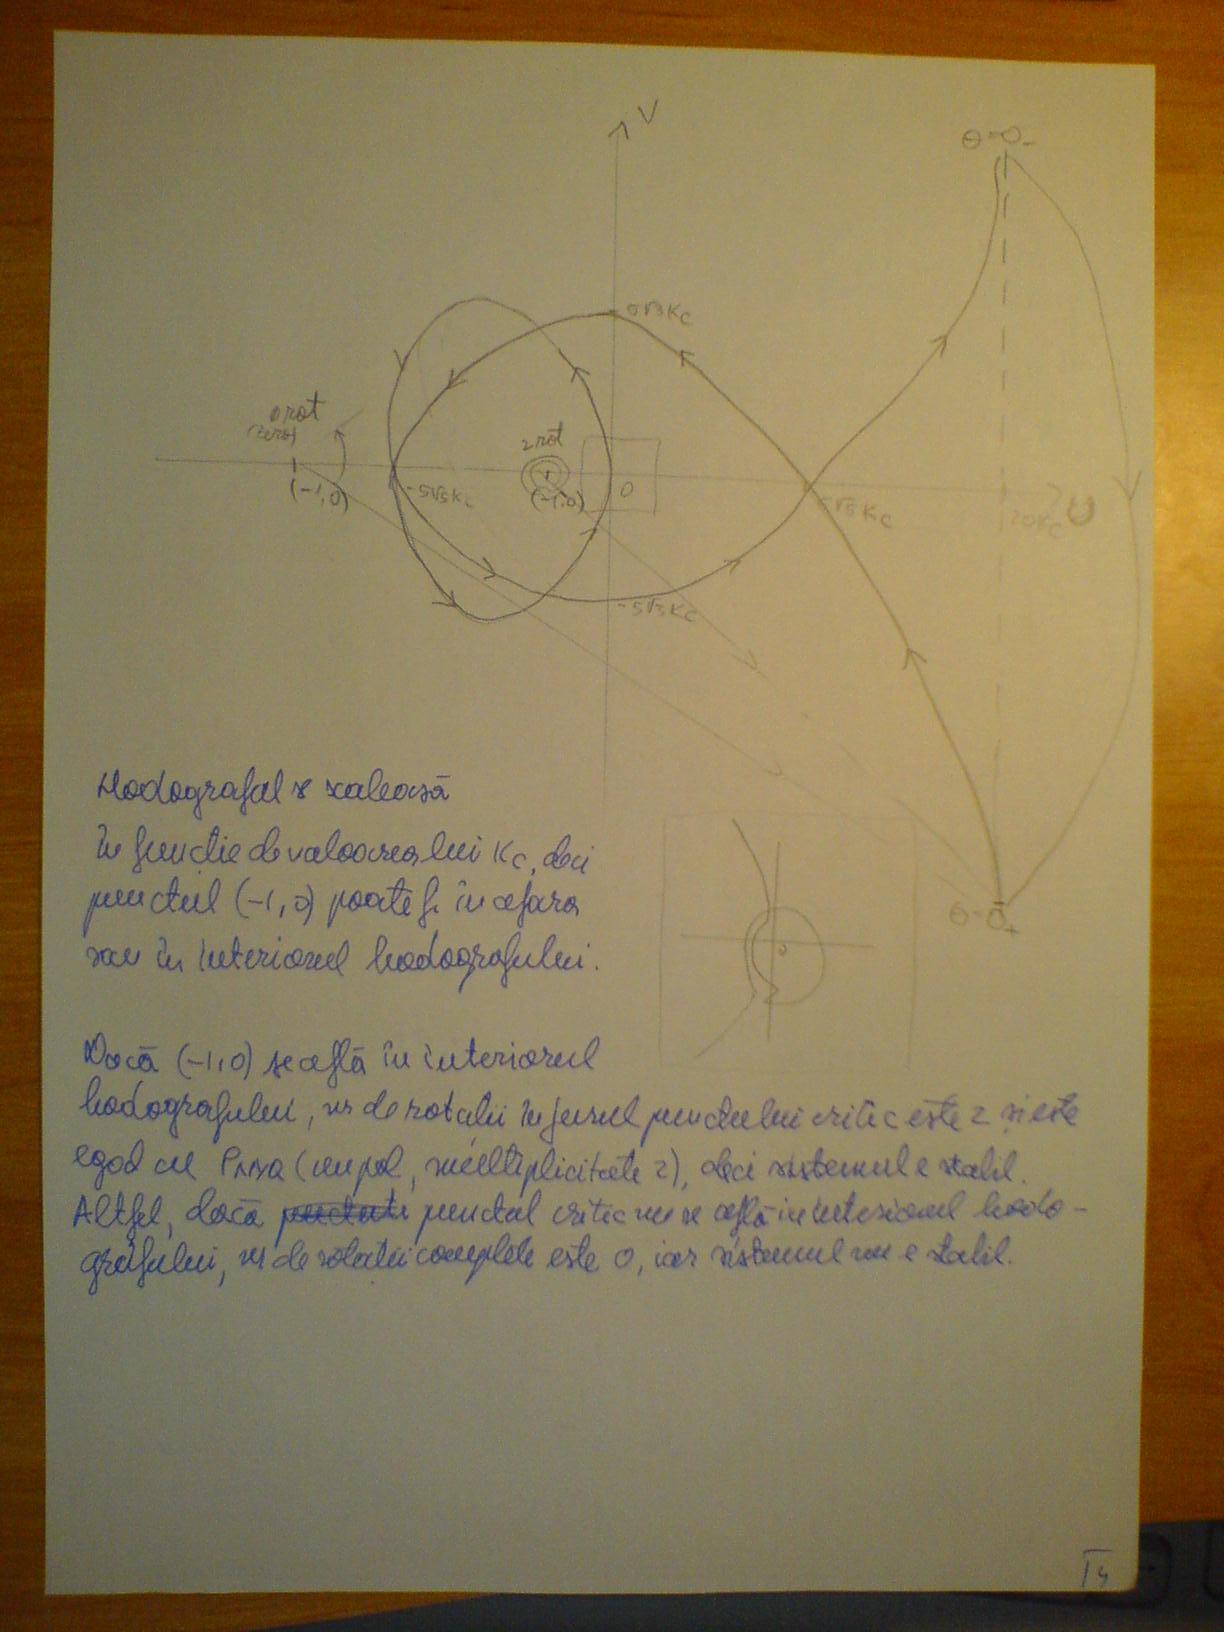 V
θ=0-
5√3 Kc
0 rot
(zero)
2 rot
(-1,0)
-5√3 Kc
(-1,0)
0
√3 Kc
20Kc
U
-5√3 Kc
θ=0+
Hodograful se scalează
în funcție de valoarea lui Kc, deci
punctul (-1,0) poate fi în afara
sau în interiorul hodografului.
Dacă (-1,0) se află în interiorul
hodografului, nr de rotații în jurul punctului critic este 2 și este
egal cu (un pol, multiplicitate 2), deci sistemul e stabil.
Altfel, dacă punctul critic nu se află în interiorul hodo-
grafului, nr de rotații complete este 0, iar sistemul nu e stabil.